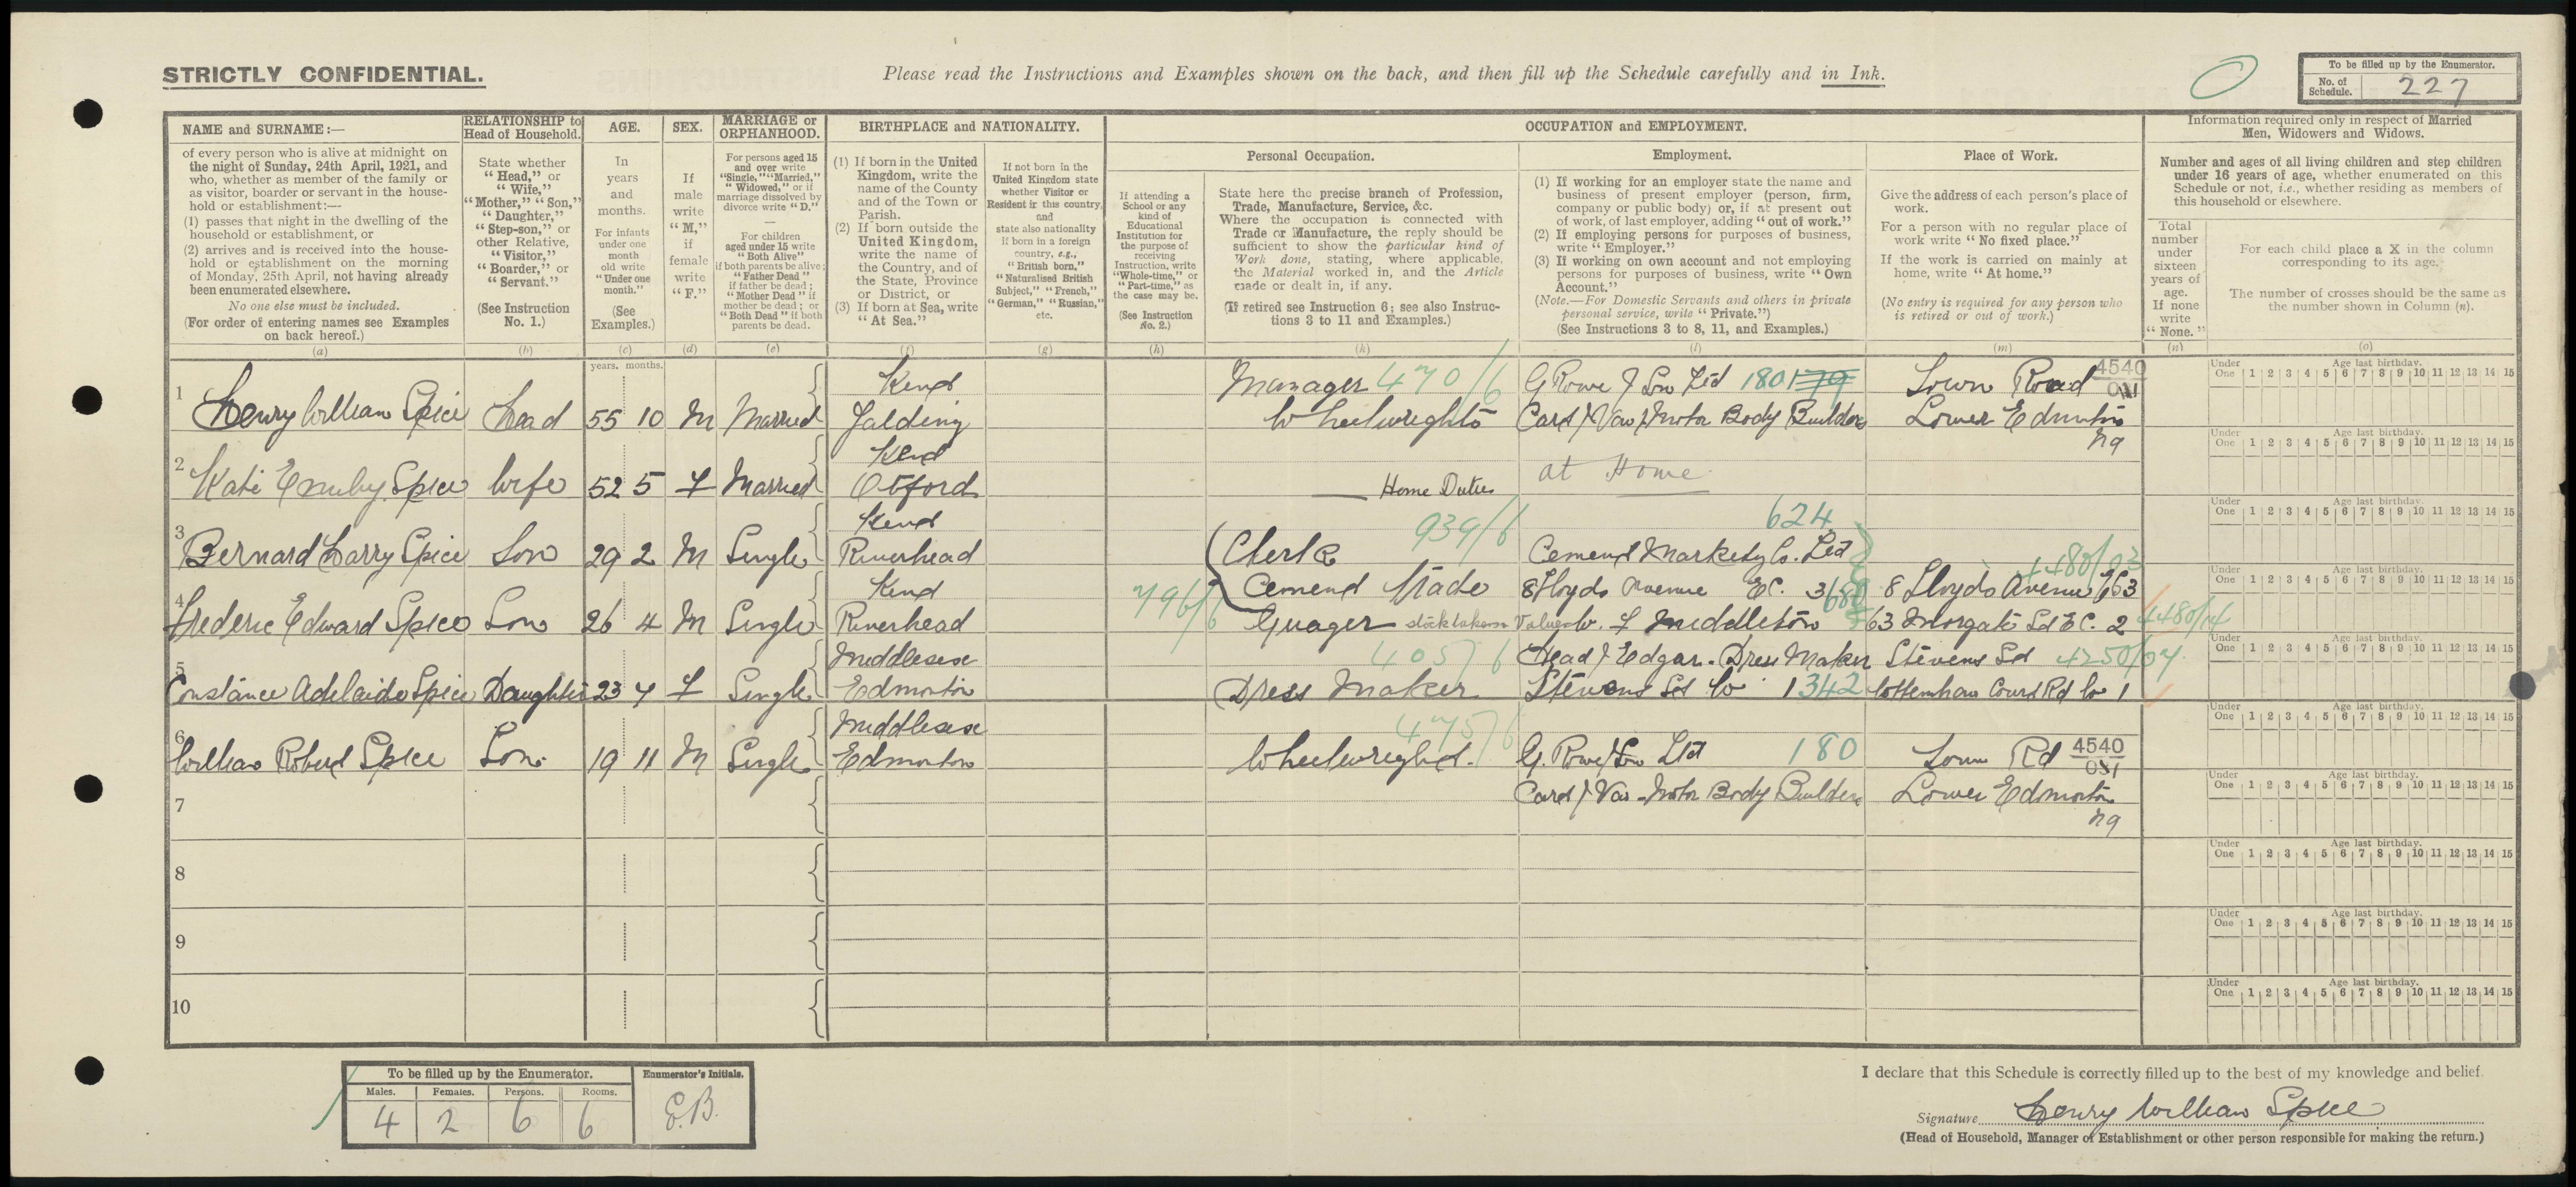 STRICTLY CONFIDENTIAL.
Please read the Instructions and Examples shown on the back, and then fill up the Schedule carefully and in Ink.
To be filled up by the Enumerator.
No. of Schedule. 227
NAME and SURNAME:—
of every person who is alive at midnight on
the night of Sunday, 24th April, 1921, and
who, whether as member of the family or
as visitor, boarder or servant in the house-
hold or establishment:—
(1) passes that night in the dwelling of the
household or establishment, or
(2) arrives and is received into the house-
hold or establishment on the morning
of Monday, 25th April, not having already
been enumerated elsewhere.
No one else must be included.
(For order of entering names see Examples
on back hereof.)
(a)
RELATIONSHIP to
Head of Household.
State whether
"Head," or
"Wife,"
"Mother," "Son,"
"Daughter,"
"Step-son," or
other Relative,
"Visitor,"
"Boarder," or
"Servant."
(See Instruction
No. 1.)
(b)
AGE.
In
years
and
months.
For infants
under one
month
old write
"Under one
month."
(See
Examples.)
(c)
years. months.
SEX.
If
male
write
"M,"
if
female
write
"F."
(d)
MARRIAGE or
ORPHANHOOD.
For persons aged 15
and over write
"Single," "Married,"
"Widowed," or if
marriage dissolved by
divorce write "D."
—
For children
aged under 15 write
"Both Alive"
if both parents be alive;
"Father Dead"
if father be dead;
"Mother Dead" if
mother be dead; or
"Both Dead" if both
parents be dead.
(e)
BIRTHPLACE and NATIONALITY.
(1) If born in the United
Kingdom, write the
name of the County
and of the Town or
Parish.
(2) If born outside the
United Kingdom,
write the name of
the Country, and of
the State, Province
or District, or
(3) If born at Sea, write
"At Sea."
(f)
If not born in the
United Kingdom state
whether Visitor or
Resident in this country,
and
state also nationality
if born in a foreign
country, e.g.,
"British born,"
"Naturalised British
Subject," "French,"
"German," "Russian,"
etc.
(g)
OCCUPATION and EMPLOYMENT.
If attending a
School or any
kind of
Educational
Institution for
the purpose of
receiving
Instruction, write
"Whole-time," or
"Part-time," as
the case may be.
(See Instruction
No. 2.)
(h)
Personal Occupation.
State here the precise branch of Profession,
Trade, Manufacture, Service, &c.
Where the occupation is connected with
Trade or Manufacture, the reply should be
sufficient to show the particular kind of
Work done, stating, where applicable,
the Material worked in, and the Article
made or dealt in, if any.
(If retired see Instruction 6; see also Instruc-
tions 3 to 11 and Examples.)
(k)
Employment.
(1) If working for an employer state the name and
business of present employer (person, firm,
company or public body) or, if at present out
of work, of last employer, adding "out of work."
(2) If employing persons for purposes of business,
write "Employer."
(3) If working on own account and not employing
persons for purposes of business, write "Own
Account."
(Note.—For Domestic Servants and others in private
personal service, write "Private.")
(See Instructions 3 to 8, 11, and Examples.)
(l)
Place of Work.
Give the address of each person's place of
work.
For a person with no regular place of
work write "No fixed place."
If the work is carried on mainly at
home, write "At home."
(No entry is required for any person who
is retired or out of work.)
(m)
Information required only in respect of Married
Men, Widowers and Widows.
Number and ages of all living children and step children
under 16 years of age, whether enumerated on this
Schedule or not, i.e., whether residing as members of
this household or elsewhere.
Total
number
under
sixteen
years of
age.
If none
write
"None."
(n)
For each child place a X in the column
corresponding to its age.
The number of crosses should be the same as
the number shown in Column (n).
(o)
Kent Manager 470/6 G Rowe & Son Ltd 180 179 Town Road 4540
1 Henry William Spice Head 55 10 M Married Yalding Wheelwrights Cart & Van & Motor Body Builders Lower Edmonton
n9
Kent
2 Kate Emily Spice Wife 52 5 F Married Otford Home Duties at Home
Kent 939/6 624
3 Bernard Harry Spice Son 29 2 M Single Riverhead Clerk Cement Marketg Co. Ltd
Kent 796/6 Cement Trade 8 Lloyds Avenue E.C. 3 8 Lloyds Avenue EC3
4 Frederic Edward Spice Son 26 4 M Single Riverhead Guager W. F Middleton 63 Morgate St E C. 2
Middlesex 405/6 Head & Edgar. Dress Maker Stevens St 4250/04
5 Constance Adelaide Spice Daughter 23 7 F Single Edmonton Dress Maker Stevens St W 1 342 Tottenham Court Rd W 1
Middlesex 475/6
6 William Robert Spice Son 19 11 M Single Edmonton Wheelwright. G. Rowe & Son Ltd 180 Town Rd 4540
7 Cart & Van - Motor Body Builders Lower Edmonton
n9
8
9
10
Under One Age last birthday. 1 2 3 4 5 6 7 8 9 10 11 12 13 14 15
Under One Age last birthday. 1 2 3 4 5 6 7 8 9 10 11 12 13 14 15
Under One Age last birthday. 1 2 3 4 5 6 7 8 9 10 11 12 13 14 15
Under One Age last birthday. 1 2 3 4 5 6 7 8 9 10 11 12 13 14 15
Under One Age last birthday. 1 2 3 4 5 6 7 8 9 10 11 12 13 14 15
Under One Age last birthday. 1 2 3 4 5 6 7 8 9 10 11 12 13 14 15
Under One Age last birthday. 1 2 3 4 5 6 7 8 9 10 11 12 13 14 15
Under One Age last birthday. 1 2 3 4 5 6 7 8 9 10 11 12 13 14 15
Under One Age last birthday. 1 2 3 4 5 6 7 8 9 10 11 12 13 14 15
Under One Age last birthday. 1 2 3 4 5 6 7 8 9 10 11 12 13 14 15
To be filled up by the Enumerator.
Males. Females. Persons. Rooms.
4 2 6 6
Enumerator's Initials.
E.B.
I declare that this Schedule is correctly filled up to the best of my knowledge and belief
Signature Henry William Spice
(Head of Household, Manager of Establishment or other person responsible for making the return.)